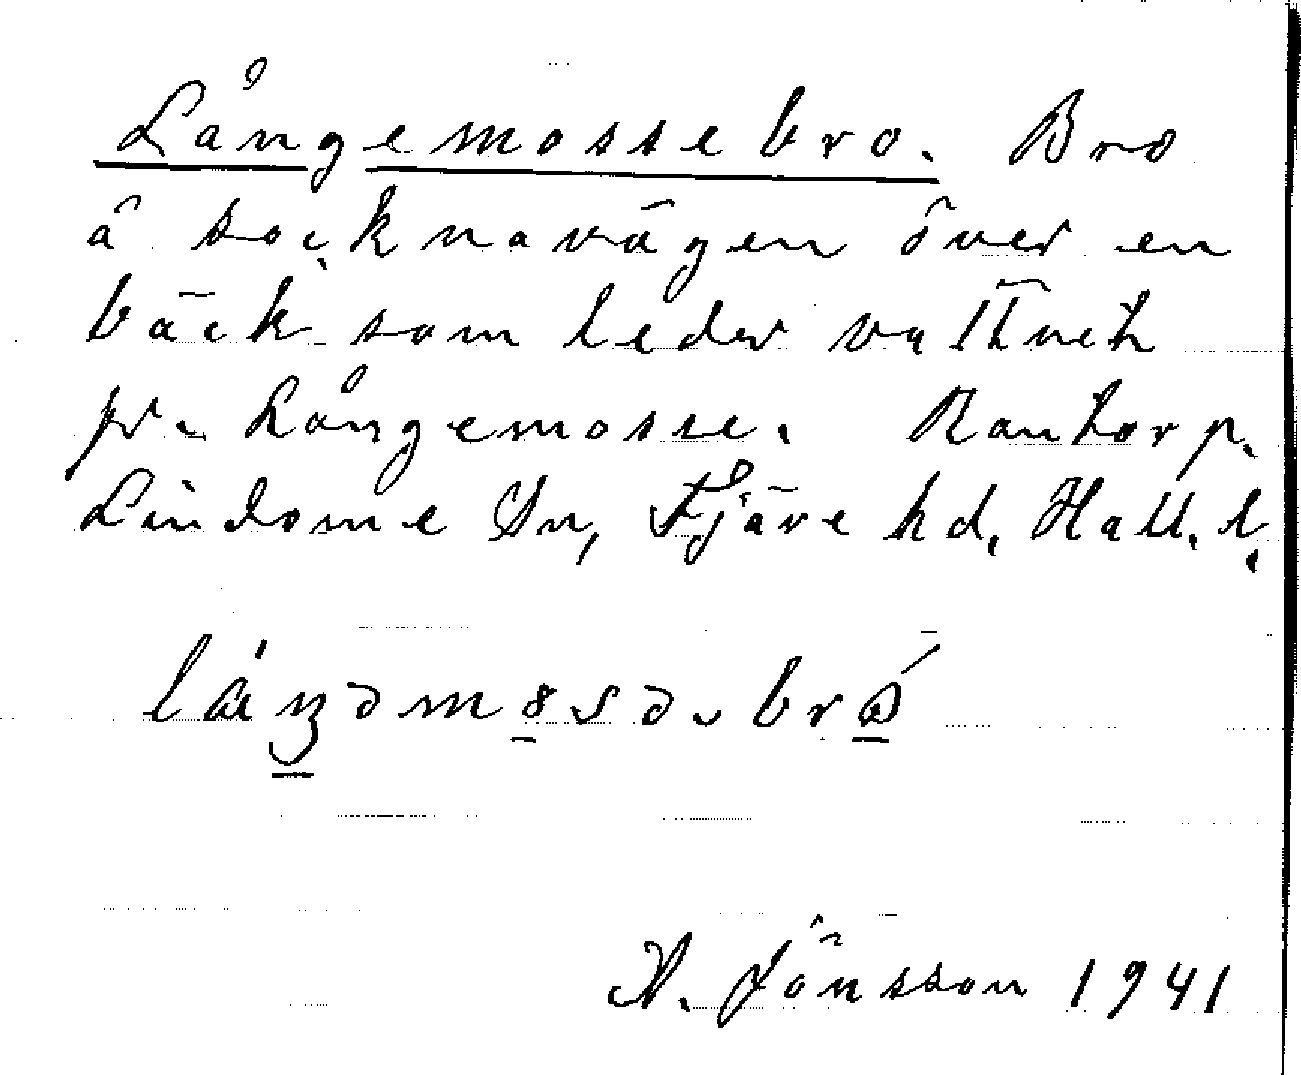 Långemossebro. Bro
å socknavägen över en
bäck som leder vattnet
fr. Långemosse. Rantorp.
Lindome Sn, Fjäre hd. Hall. l.
A. Jönsson 1941